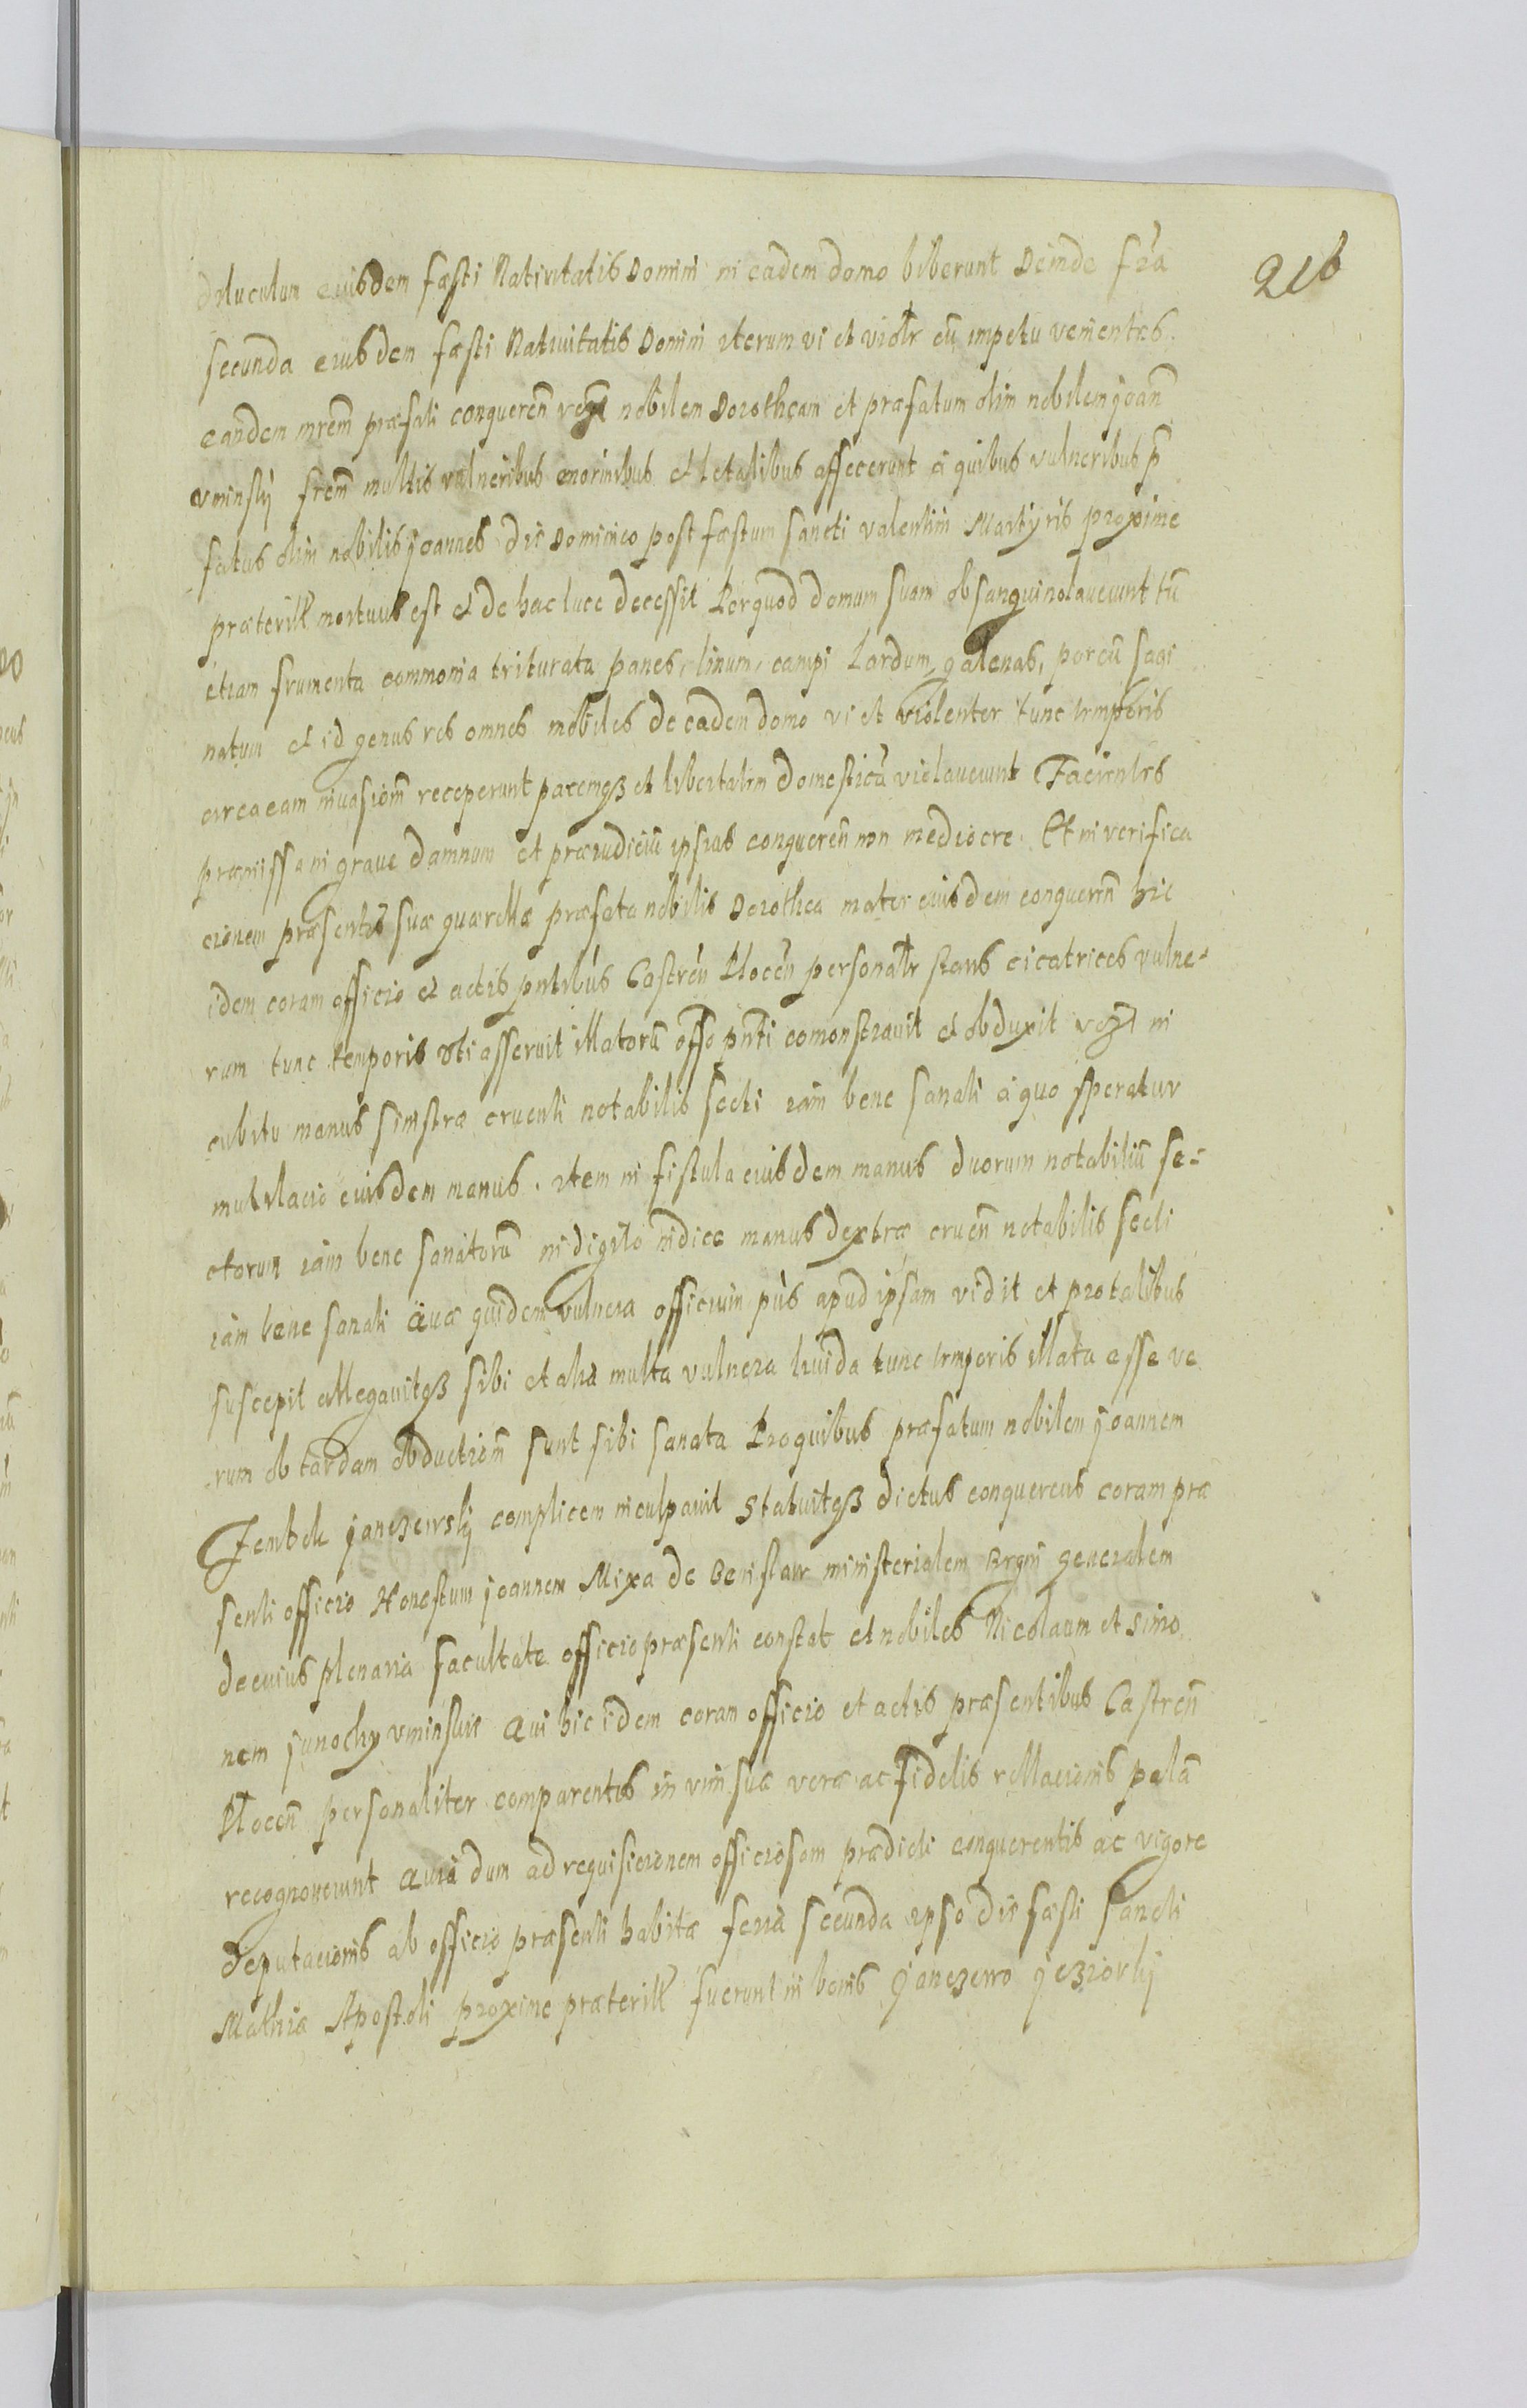 216
diluculum eiusdem fæsti Natiuitatis Domini in eadem domo biberunt Deinde fria
secunda eiusdem fæsti Natiuitatis Domini iterum vi et violtr cũ impetu venientes.
eandem mrem præfati conqueren nobilem Dorotheam et præfatum olim nobilem Joan
vminsky frem multis vulneribus enormibus et letalibus affecerunt a quibus vulneribus p̃
fatus olim nobilis Joannes die Dominico post fæstum sancti valentini Martyris proxime
præterit mortuus est et de hac luce decessit Per quod domum suam obsanguinolaverunt tũ
etiam frumenta commoma triturata panes, linum, campi Lardum, galenas, porcũ sagi
natum et id genus res omnes mobiles de eadem domo vi et violenter tunc temporis
circa eam inuasionem receperunt pacemqз et libertatem domesticã violaverunt Facientes
præmissa in graue damnum et præiudiciũ ipsius conqueren non mediocre. Et in verifica
cionem præsentis suæ quærellæ præfata nobilis Dorothea mater eiusdem conqueren hic
idem coram officio et actis pntibus Castren Plocen personaltr stans cicatrices vulne-
rum tunc temporis vti asseruit illatorũ offo pnti comonstrauit et obduxit in
cubito manus sinistræ cruenti notabilis secti iam bene sanati a quo speratur
mutilacio eiusdem manus. Item in fistula eiusdem manus duorum notabiliũ se-
ctorum iam bene sanatorũ in digito indice manus dextræ cruen notabilis secti
iam bene sanati Quæ quidem vulnera officium pns apud ipsam vidit et pro talibus
suscepit allegauitqз sibi et alia multa vulnera liuida tunc temporis illata esse ve
rum ob tardam obductionem sunt sibi sanata Pro quibus præfatum nobilem Joannem
Janczewsky complicem inculpauit Statuitqз dictus conquerens coram præ
senti officio Honestum Joannem Mixa de ministerialem Regni generalem
de cuius plenaria facultate officio præsenti constat et nobiles Nicolaum et Simo
nem vminskie Qui hic idem coram officio et actis præsentibus Castren
Plocen personaliter comparentes in vim suæ veræ ac fidelis rellacionis palã
recognouerunt Quia dum ad requisicionem officiosam prædicti conquerentis ac vigore
deputacionis ab officio præsenti habitæ feria secunda ipso die fæsti Sancti
Mathiæ Apostoli proxime præterit fuerunt in bonis Janczewo